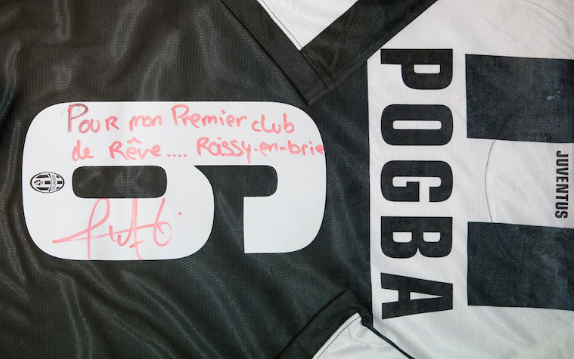 Pour mon Premier club
de Rêve.... Roissy-en-brie
6
POGBA
JUVENTUS